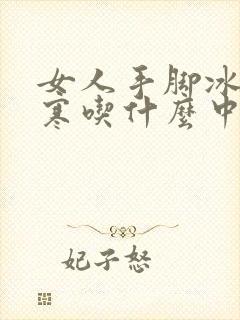 女人手脚冰
寒喫什麼中
妃子怒